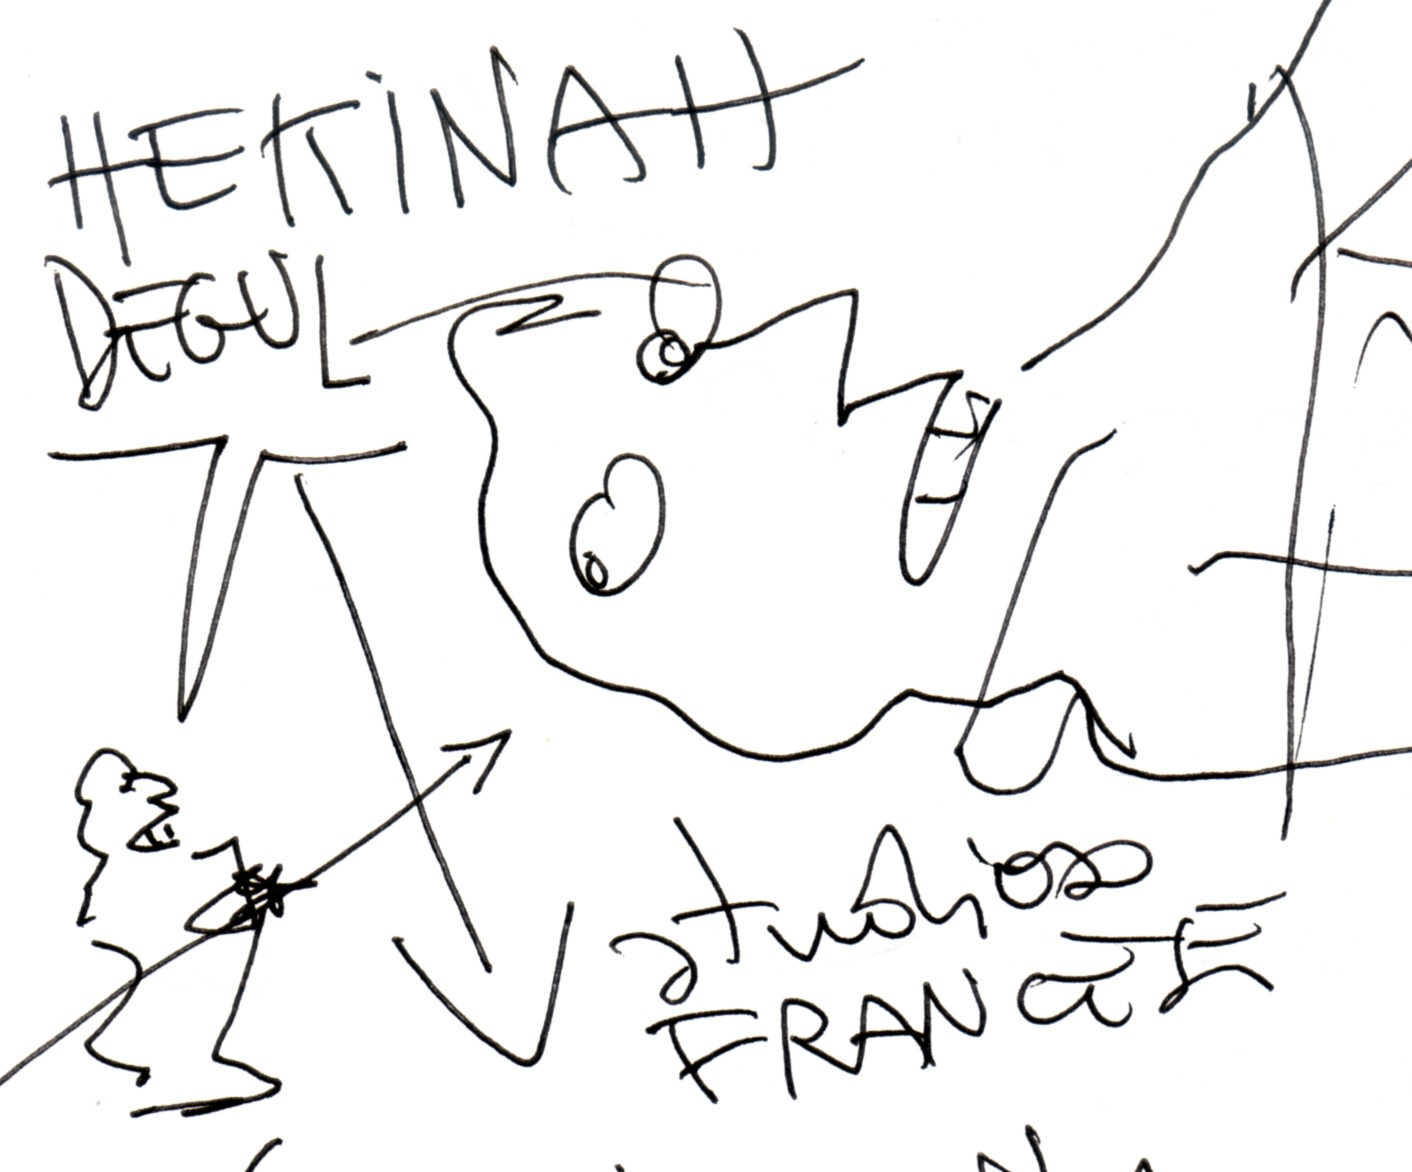 HEKiNAH
DEGUL
studios
FRANCE